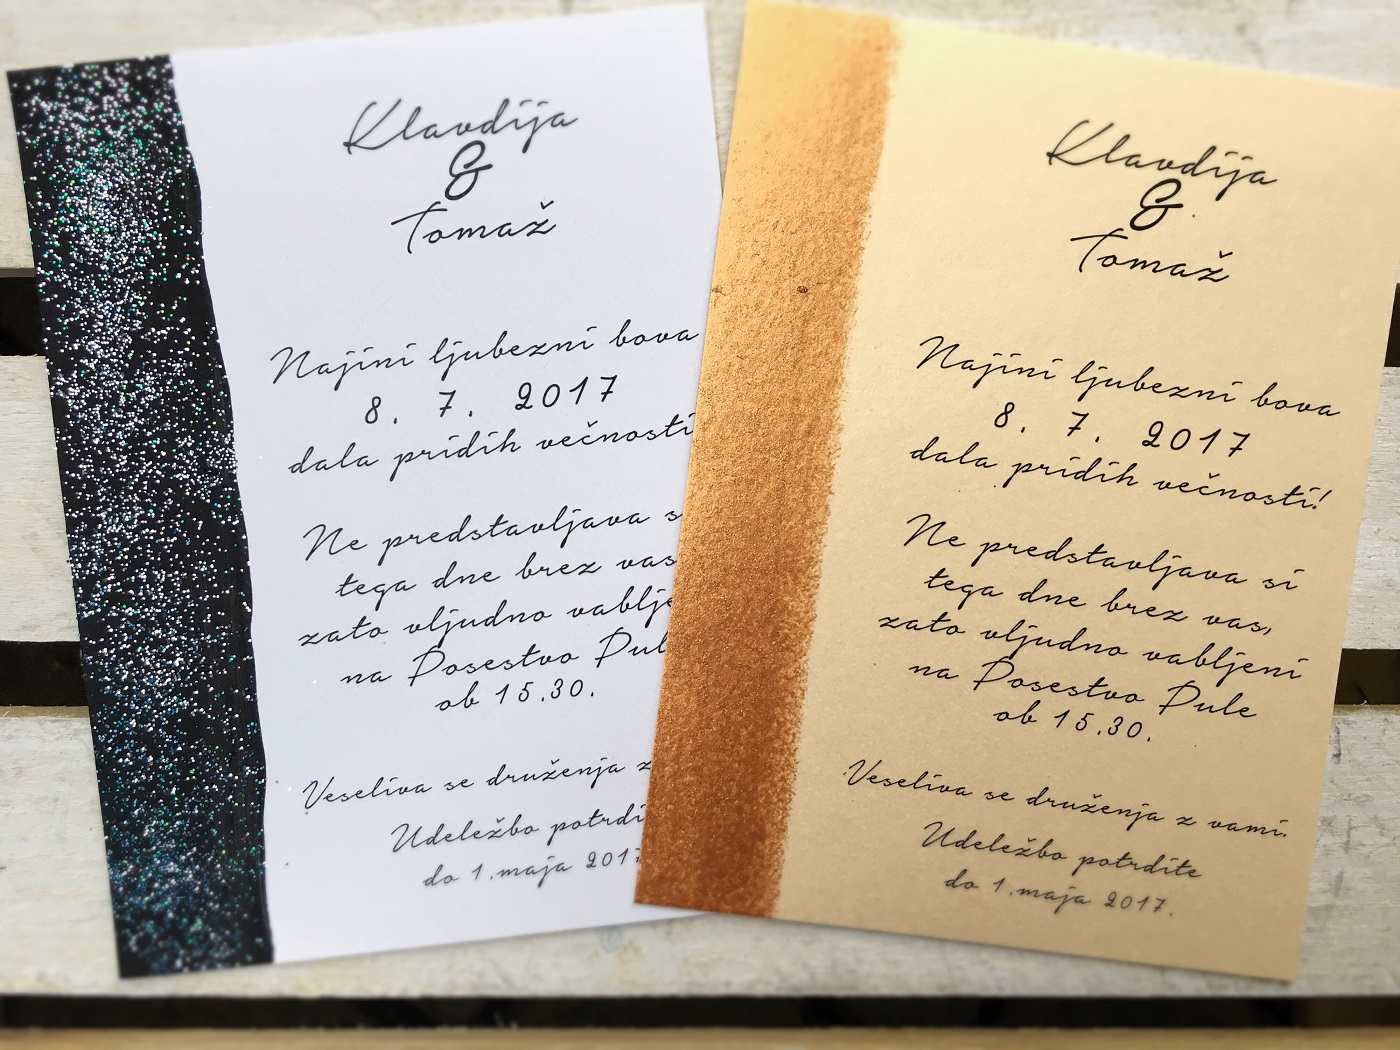 Klavdija
&
Tomaž
Najini ljubezni bova
8. 7. 2017
dala pridih večnosti
Ne predstavljava s
tega dne brez vas
zato vljudno vablje
na Posestvo Pul
ob 15.30.
Veseliva se druženja z
Udeležbo potrdi
do 1.maja 2017
Klavdija
&
Tomaž
Najini ljubezni bova
8. 7. 2017
dala pridih večnosti!
Ne predstavljava si
tega dne brez vas,
zato vljudno vabljeni
na Posestvo Pule
ob 15.30.
Veseliva se druženja z vami.
Udeležbo potrdite
do 1.maja 2017.